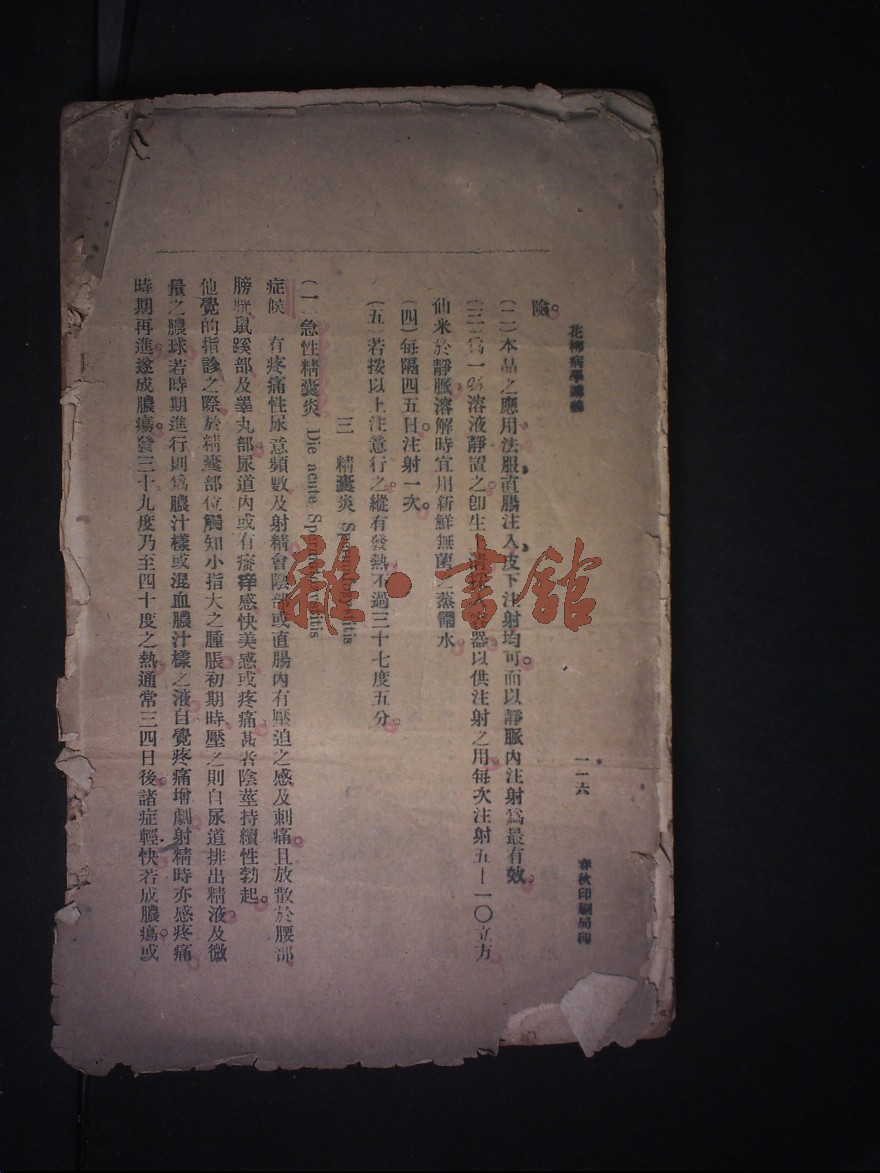 花柳病學講義
一一六
春秋印刷局印
險。
(二)本品之應用法服直腸注入皮下注射均可。而以靜脈內注射爲最有效。
(三)爲一%溶液靜置之卽生上清 器以供注射之用每次注射五—一〇立方
仙米於靜脈溶解時宜用新鮮無菌之蒸餾水
(四)每隔四五日注射一次。
(五)若按以上注意行之。縱有發熱不過三十七度五分。
三 精囊炎
(一)急性精囊炎 Die acute
症候 有疼痛性尿意頻數及射精會陰部或直腸內有壓迫之感及刺痛。且放散於腰部
膀胱鼠蹊部及睾丸部尿道內或有瘙痒感快美感或疼痛甚者陰莖持續性勃起。
他覺的指診之際於精囊部位觸知小指大之腫脹初期時壓之則自尿道排出精液及微
量之膿球若時期進行則爲膿汁樣或混血膿汁樣之液自覺疼痛增劇射精時亦感疼痛
時期再進遂成膿瘍。發三十九度乃至四十度之熱通常三四日後諸症輕快若成膿瘍或
雜·書館